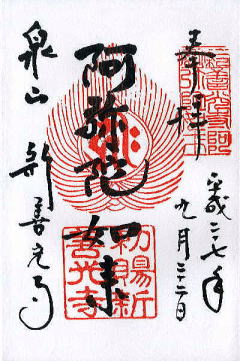 奉拝
平成二七年
九月二十二日
阿弥陀如来
泉山 新善光寺
勅賜新
善光寺